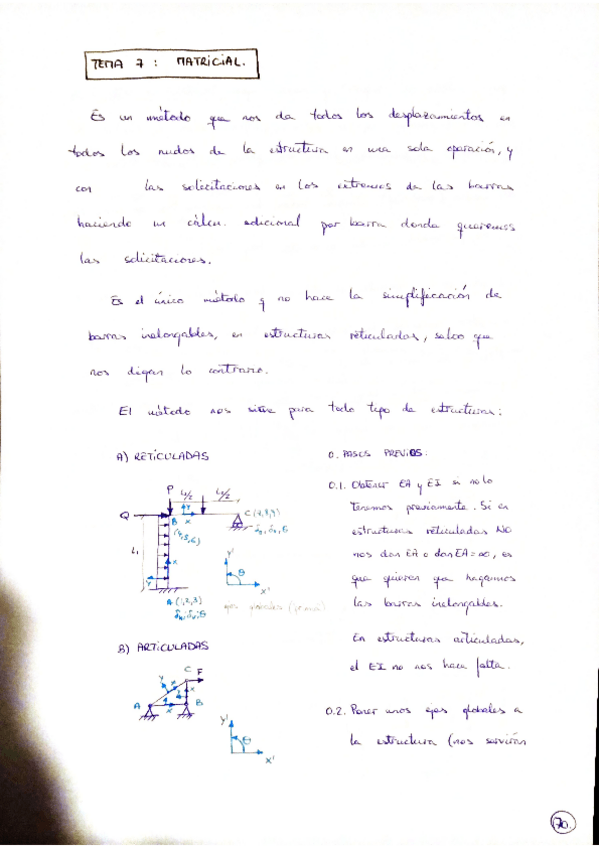 TEMA 7 : MATRICIAL.
Es un método que nos da todos los desplazamientos en
todos los nudos de la estructura en una sola operación, y
con las solicitaciones en los extremos de las barras
haciendo un cálcu. adicional por barra donde queremos
las solicitaciones.
Es el único método q no hace la simplificación de
barras inelongables, en estructuras reticuladas, salvo que
nos digan lo contrario.
El método nos sirve para todo tipo de estructuras:
A) RETICULADAS
P L2/2 L2/2
Q
Y X
B
C (7,8,9)
(4,5,6)
L1
X
Y
A (1,2,3)
Y'
θ
X'
B) ARTICULADAS
C F
Y X
A B
X
Y'
θ
X'
0. PASOS PREVIOS:
0.1. Obtener EA y EI si no lo
tenemos previamente. Si en
estructuras reticuladas NO
nos dan EA o dan EA=∞, es
que quieren que hagamos
las barras inelongables.
En estructuras articuladas,
el EI no nos hace falta.
0.2. Poner unos ejes globales a
la estructura (nos servirán
70.